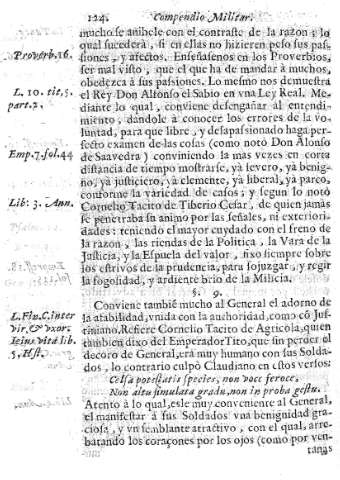 124. Compendio Militar.
mucho se anihele con el contraste de la razon; lo
qual sucederá, si en ellas no hizieren peso sus pas-
siones, y afectos. Enseñasenos en los Proverbios,
ser mal visto, que el que ha de mandar à muchos,
obedezca à sus passiones. Lo mesmo nos demuestra
el Rey Don Alfonso el Sabio en vna Ley Real. Me-
diante lo qual, conviene desengañar al entendi-
miento, dandole à conocer los errores de la vo-
luntad, para que libre, y desapassionado haga per-
fecto examen de las cosas (como notò Don Alonso
de Saavedra) conviniendo la mas vezes en corta
distancia de tiempo mostrarse, yà severo, yà benig-
no, yà justiciero, yà clemente, yà liberal, yà parco,
conforme la variedad de casos; y segun lo notò
Cornelio Tacito de Tiberio Cesar, de quien jamás
se penetraba su animo por las señales, ni exteriori-
dades: teniendo el mayor cuydado con el freno de
la razon, las riendas de la Politica, la Vara de la
Justicia, y la Espuela del valor, fixo siempre sobre
los estrivos de la prudencia, para sojuzgar, y regir
la fogosidad, y ardiente brio de la Milicia.
§. 9.
Conviene tambiē mucho al General el adorno de
la afabilidad, vnida con la authoridad, como cō Jus-
tiniano, Refiere Cornelio Tacito de Agricola, quien
tambien dixo del Emperador Tito, que sin perder el
decoro de General, era muy humano con sus Solda-
dos, lo contrario culpò Claudiano en estos versos:
Celsa potestatis species, non voce feroce,
Non altu simulata gradu, non in proba gestu.
Atento à lo qual, esle muy conveniente al General,
el manifestar à sus Soldados vna benignidad gra-
ciosa, y vn semblante atractivo, con el qual, arre-
batando los coraçones por los ojos (como por ven-
tanas
Proverb. 16.
L. 10. tit. 5.
part. 2.
Emp. 7. fol. 44
Lib: 3. Ann.
L. Fin. C. inter
vir. & vxor:
5. Hist.